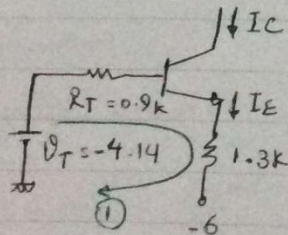 ↓ IC
RT=0.9k
↓ IE
VT=-4.14
1.3K
①
-6